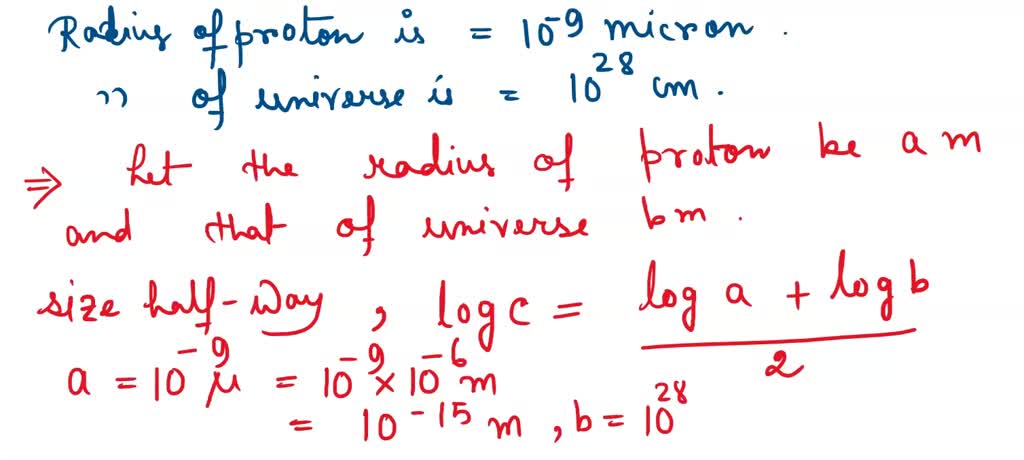 Radius of proton is = 10⁻⁹ micron.
" of universe is = 10²⁸ cm.
⇒ Let the radius of proton be a m
and that of universe b m.
size half-way, log c = (log a + log b)/2
a = 10⁻⁹ μ = 10⁻⁹ × 10⁻⁶ m
= 10⁻¹⁵ m, b = 10²⁸